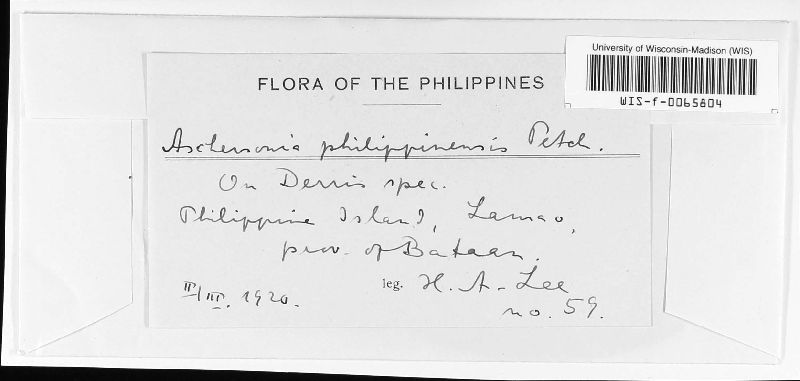 University of Wisconsin-Madison (WIS)
WIS-f-0065804
FLORA OF THE PHILIPPINES
Aschersonia philippinensis Petch.
On Derris spec.
Philippine Island, Lamao,
prov. of Bataan.
leg. H. A. Lee
II/III. 1920.
no. 59.